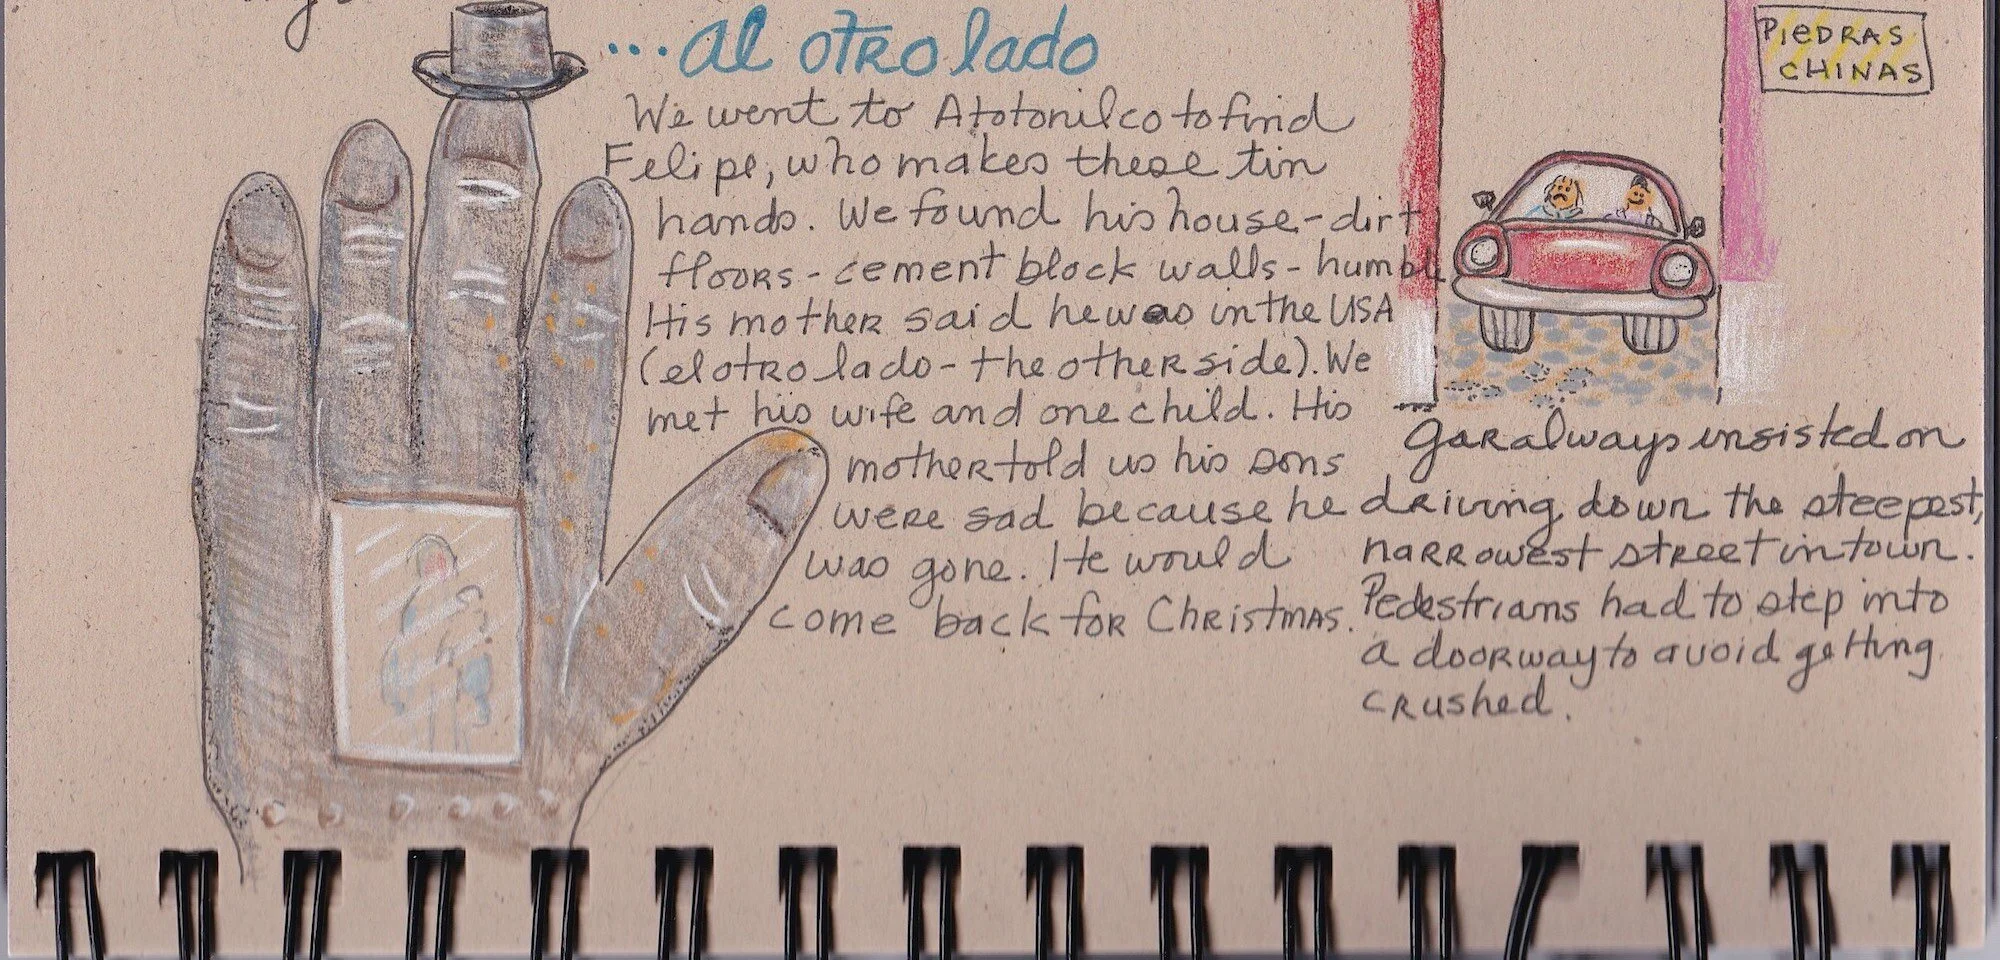 ...al otro lado
We went to Atotonilco to find
Felipe, who makes these tin
hands. We found his house - dirt
floors - cement block walls - humble
His mother said he was in the USA
(el otro lado - the other side). We
met his wife and one child. His
mother told us his sons
were sad because he
was gone. He would
come back for Christmas.
PIEDRAS
CHINAS
Gar always insisted on
driving down the steepest,
narrowest street in town.
Pedestrians had to step into
a doorway to avoid getting
crushed.